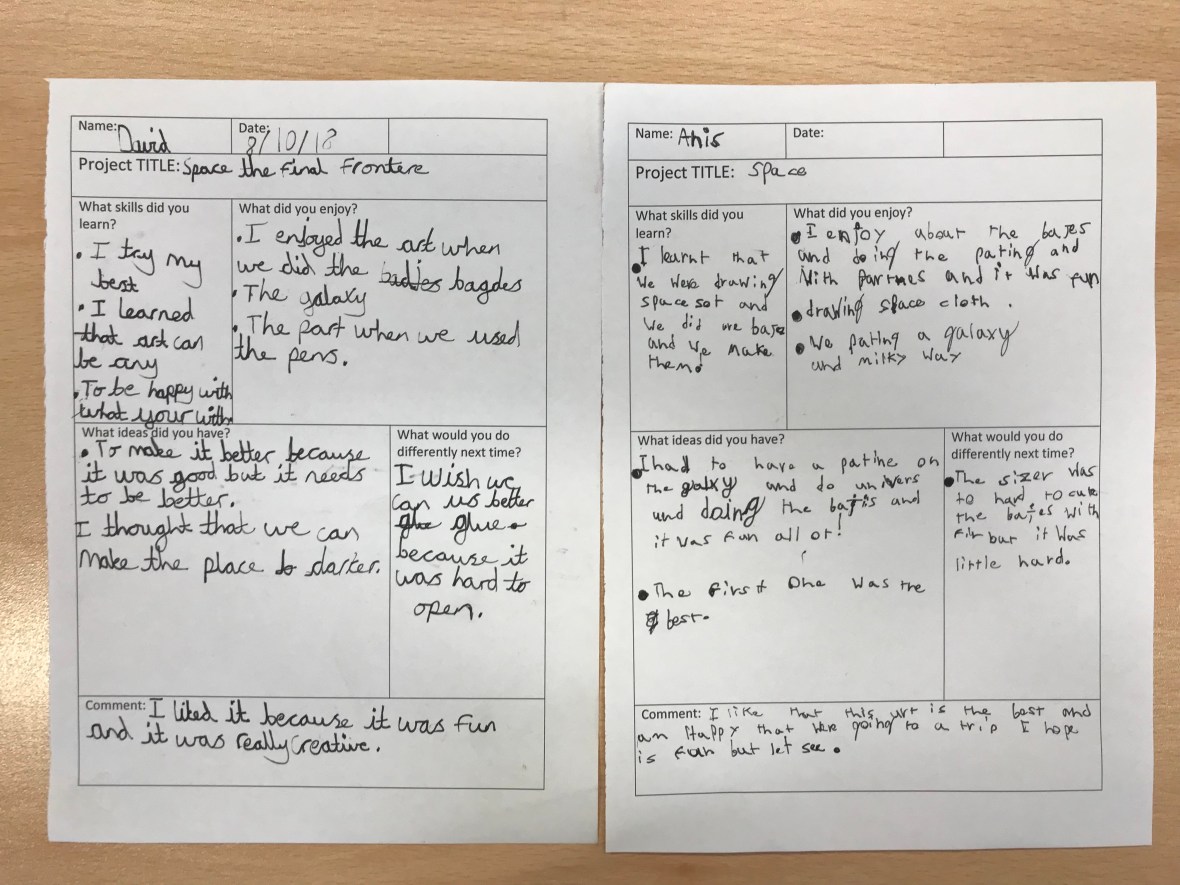 Name: David
Date: 8/10/18
Project TITLE: Space the Final Frontere
What skills did you
learn?
• I try my
best
• I learned
that art can
be any
• To be happy with
what your with
What did you enjoy?
• I enjoyed the art when
we did the badjes bagdes
• The galaxy
• The part when we used
the pens.
What ideas did you have?
• To make it better because
it was good but it needs
to be better.
I thought that we can
make the place darker.
What would you do
differently next time?
I wish we
can us better
glue glue
because it
was hard to
open.
Comment: I liked it because it was fun
and it was really creative.
Name: Anis
Date:
Project TITLE: Space
What skills did you
learn?
• I learnt that
we were drawing
space sot and
we did we baje
and we make
them.
What did you enjoy?
• I enjoy about the bajes
and doing the pating and
with partnes and it was fun
• drawing space cloth.
• We pating a galaxy
and milky way
What ideas did you have?
• I had to have a patine on
the galaxy and do univers
and doing the bajis and
it was fun all of!
• The first one was the
best.
What would you do
differently next time?
• The sizer was
to hard to cute
the bajes with
but it was
little hard.
Comment: I like that this art is the best and
am Happy that were going to a trip I hope
is fun but let see.